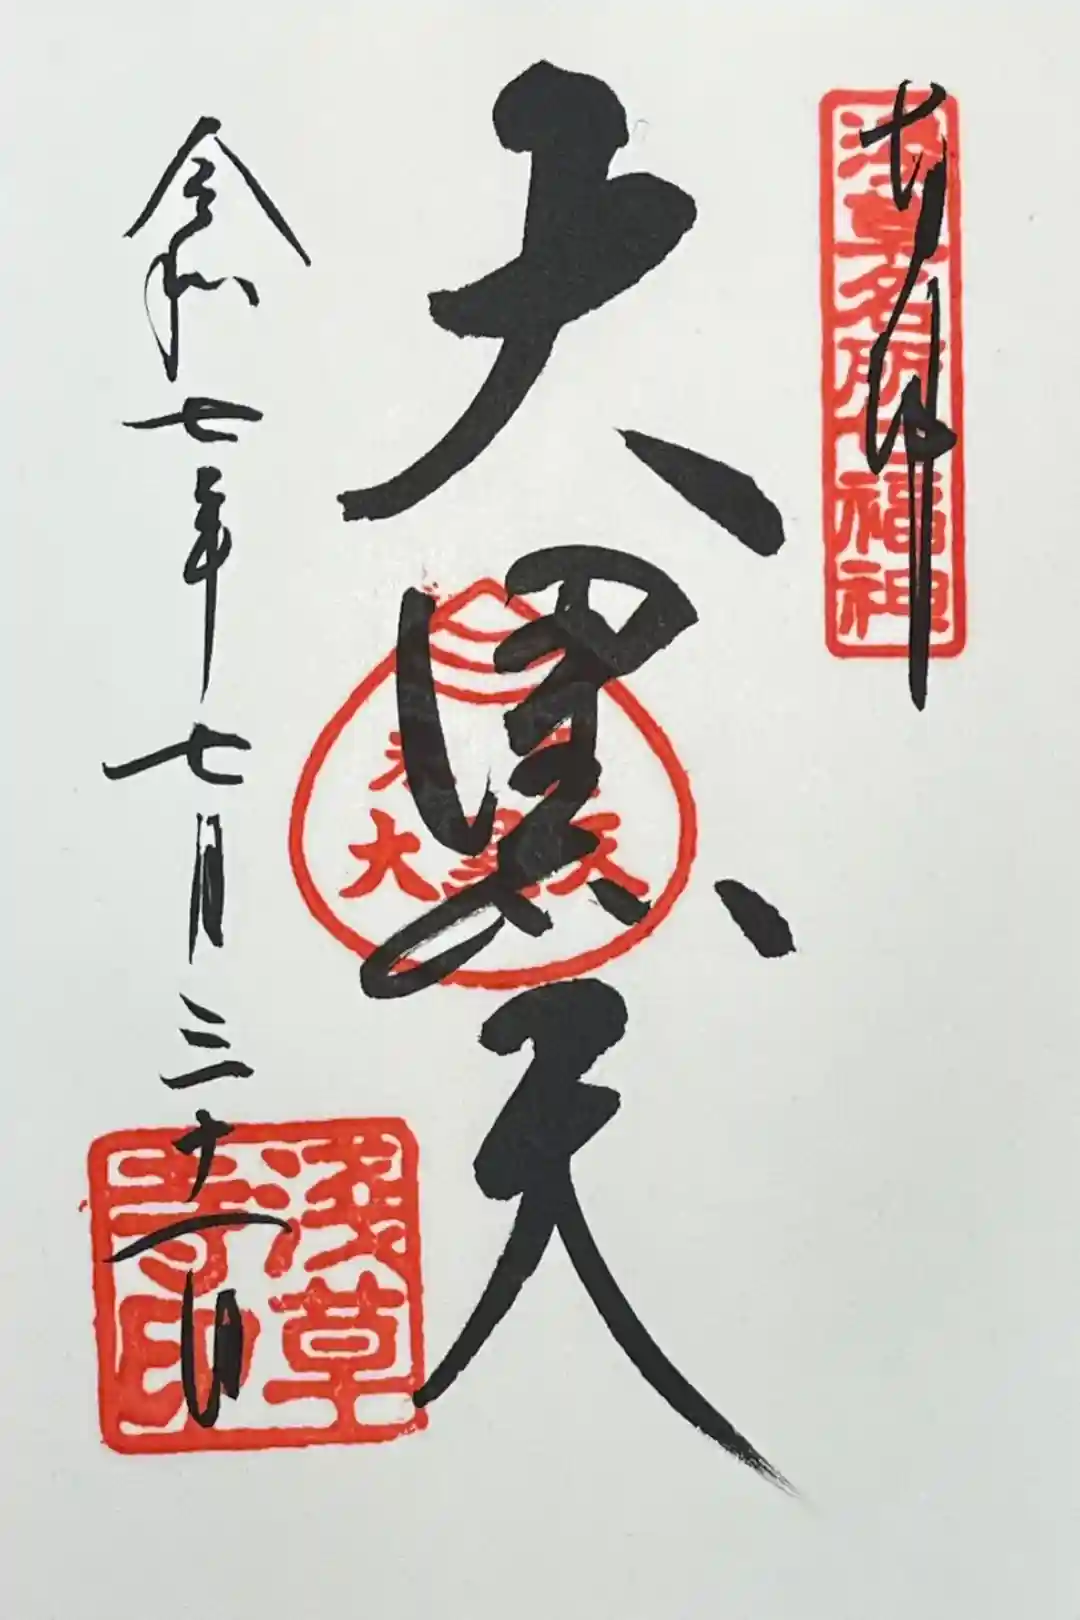 奉拝
浅草名所七福神
大黒天
大黒天
令和七年七月三十一日
浅草
寺印